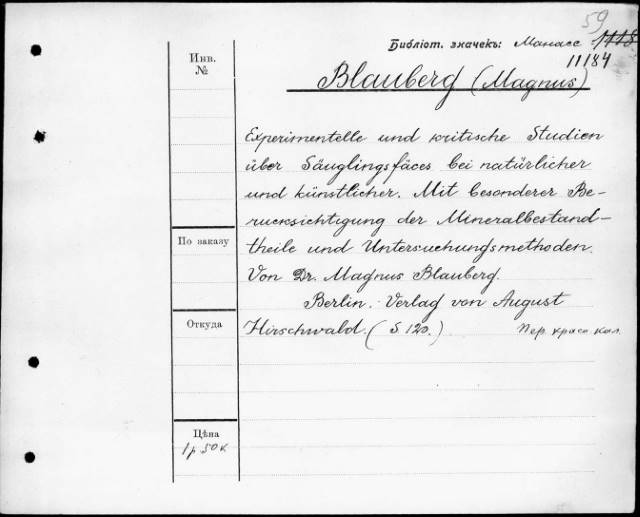 59
Библіот. значекъ: Манасс 1118
11184
Инв.
№
Blauberg (Magnus)
Experimentelle und kritische Studien
über Säuglingsfäces bei natürlicher
und künstlicher. Mit besonderer Be-
rucksichtigung der Mineralbestand-
theile und Untersuchungsmethoden.
Von Dr. Magnus Blauberg.
Berlin. Verlag von August
Hirschwald. (S. 120.) Пер. крас. кал.
По заказу
Откуда
Цѣна
1 р 50 к